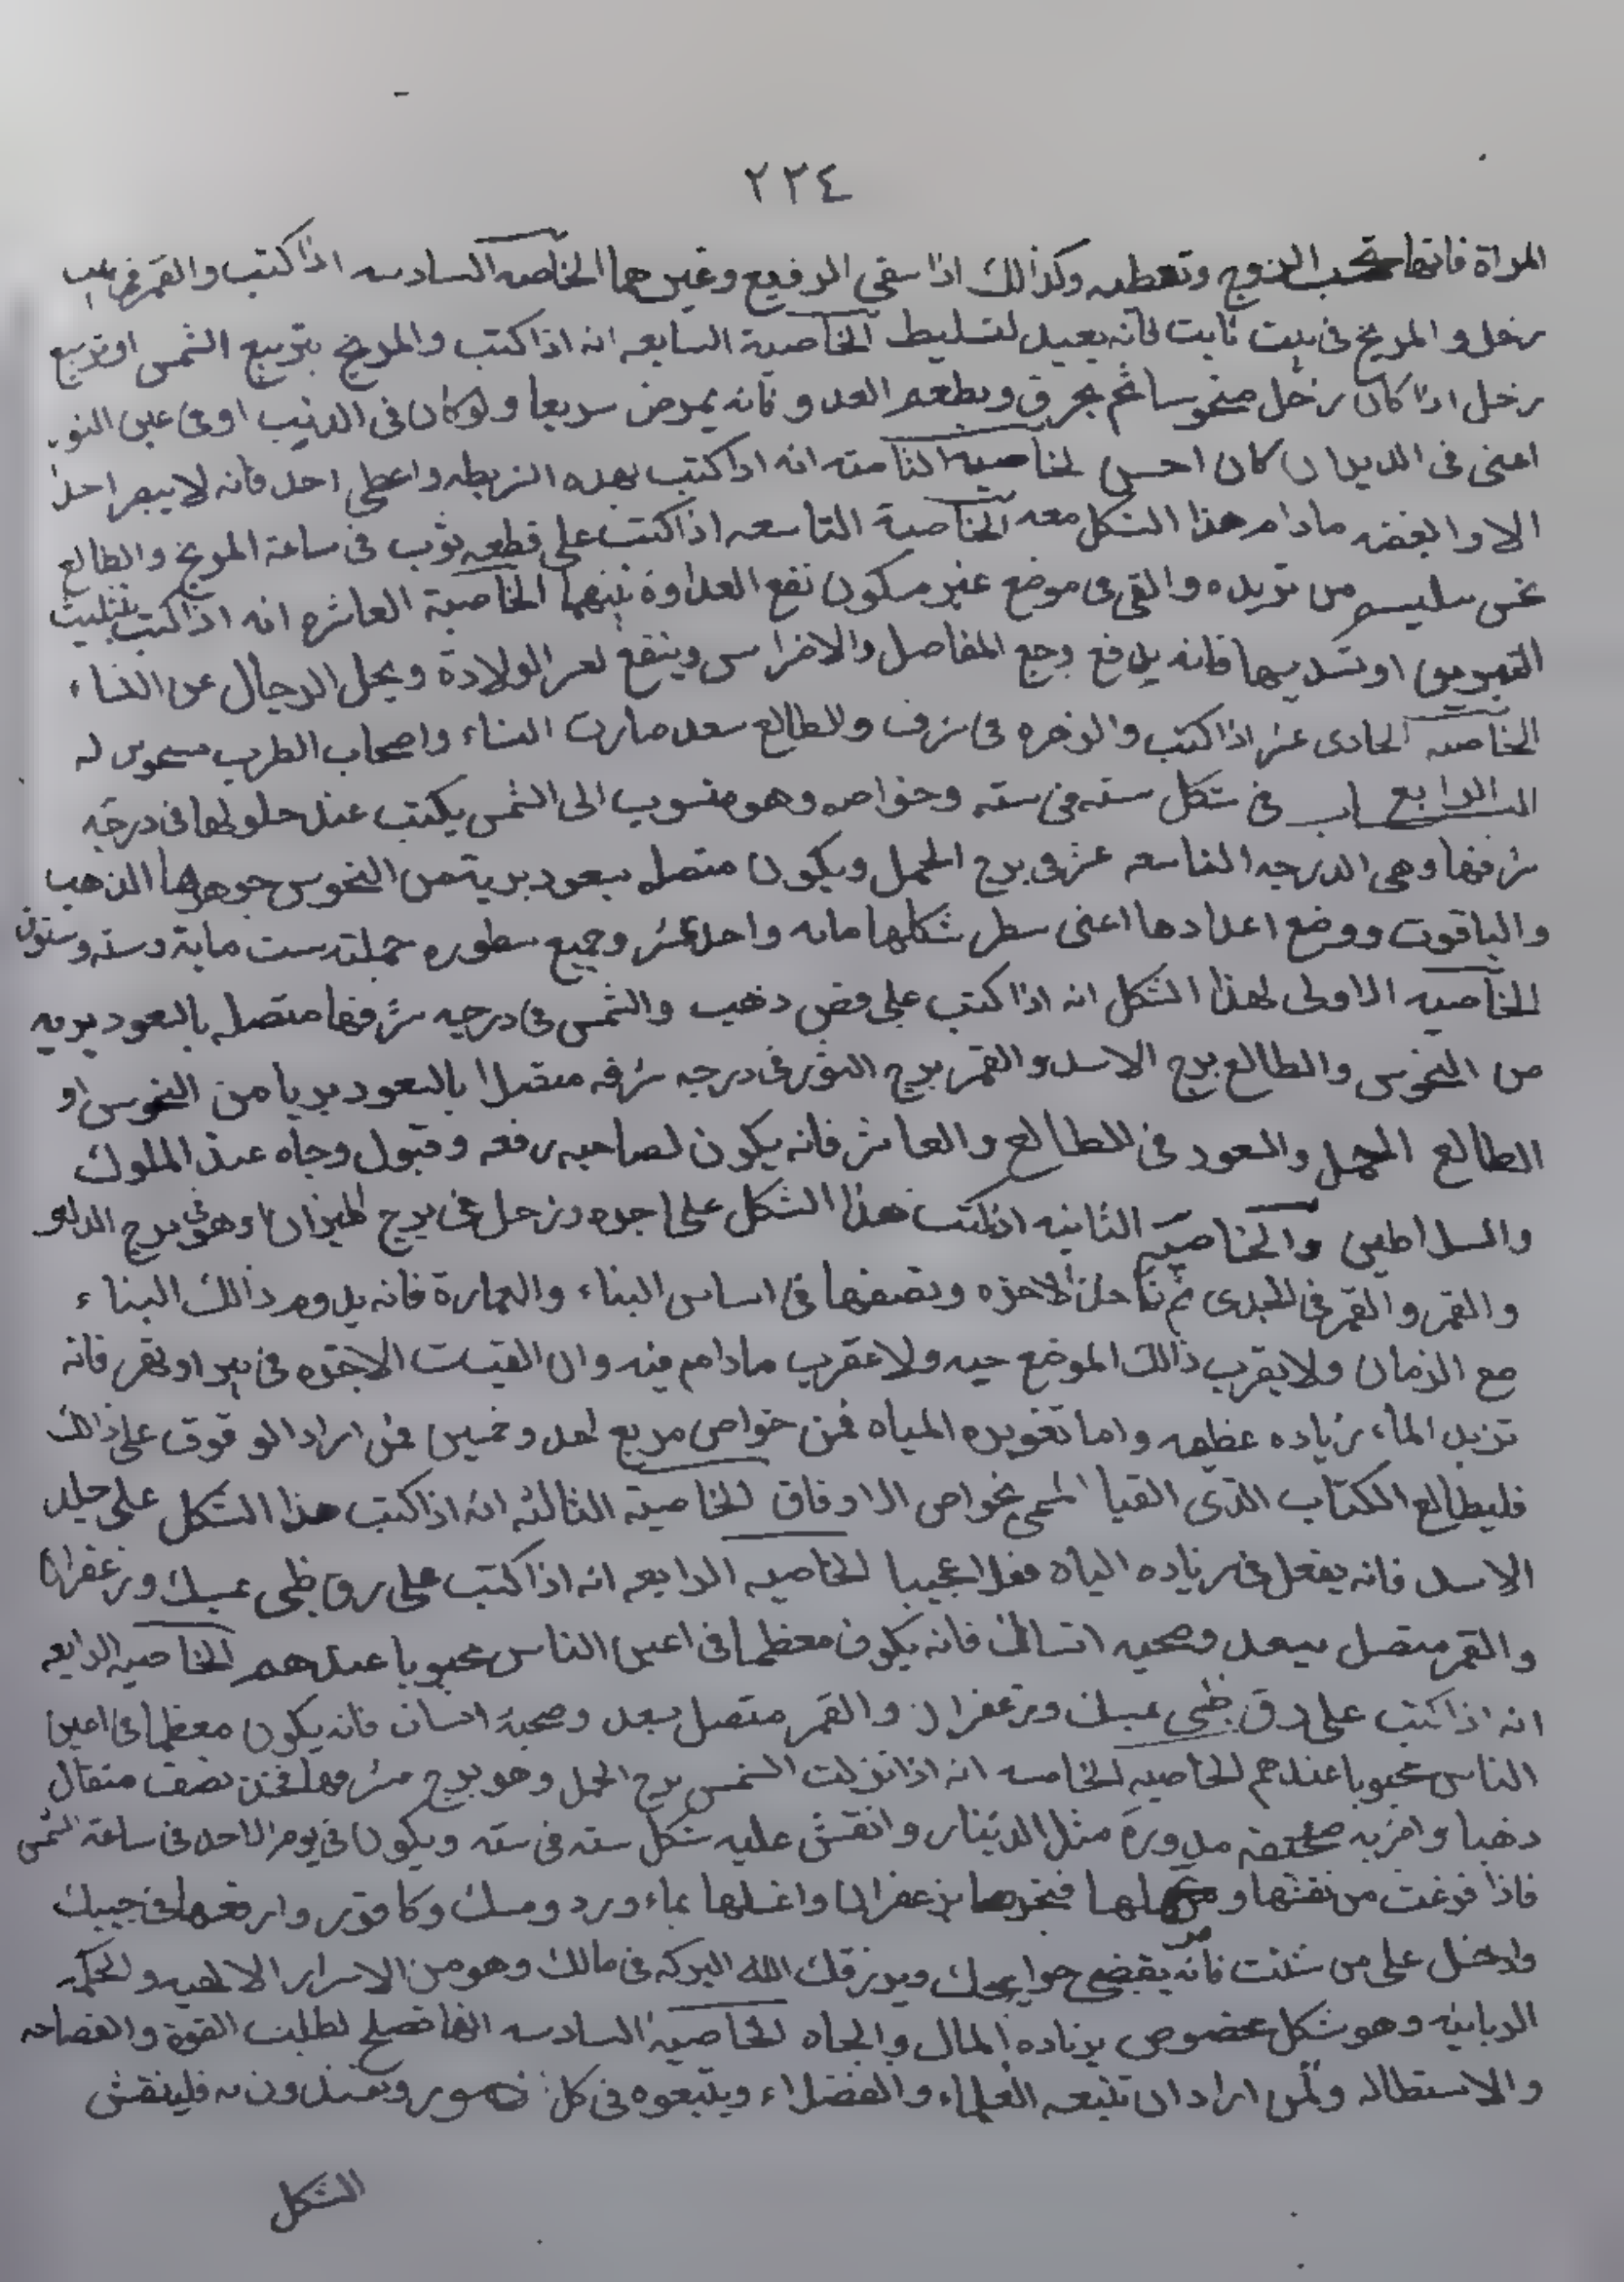 ٢٣٤
المراة فانها تحب الزوج وتعطيه وكذالك اذا سقى الرفيع وغيرهما الخاصه السادسه اذا كتب والقمر في
زحل والمريخ فى بيت ثابت فانه يعمل لتسليط الخاصية السابعه انه اذا كتب والمريخ بتربيع الشمس اوتربيع
زحل اذا كان زحل منحوسا ثم يحرق ويطعم العدو فانه يمرض سريعا ولوكان فى الذنب او فى
اعنى فى الدبران كان احسن لخاصيه الثامنه انه اذا كتب بهده الشريطه واعطى احد فانه لايبصر احدا
الا وابغضه مادام هذا الشكل معه الخاصية التاسعه اذا كتب على قطعه ثوب فى ساعة المريخ والطالع
نحس من تريده والقى فى موضع غير مسكون تقع العداوة بينهما الخاصية العاشره انه اذا كتب بتثليث
او تسديسها فانه يدفع وجع المفاصل والاضراس وينفع لعسر الولادة ويحل الرجال عن النساء
الخاصيه الحادى عشر اذا كتب والزهره فى شرف والطالع سعد صارت النساء واصحاب الطرب له
الباب الرابع فى شكل سته فى سته وخواصه وهو منسوب الى الشمس يكتب عند حلولها فى درجة
شرفها وهى الدرجه التاسعه عشر فى برج الحمل ويكون متصله بسعود برية من النحوس جوهرها الذهب
والياقوت ووضع اعدادها اعنى سطر شكلها مائه واحد عشر وجميع سطوره جملته ست ماية وسته وستون
الخاصيه الاولى لهذا الشكل انه اذا كتب على فص ذهب والشمس فى درجه شرفها متصله بالسعود بريه
من النحوس والطالع برج الاسد والقمر برج الثور فى درجه شرفه متصلا بالسعود بريا من النحوس او
الطالع الحمل والسعود فى الطالع والعاشر فانه يكون لصاحبه رفعه وقبول وجاه عند الملوك
والسلاطين والخاصيه الثانيه اذا كتب هذا الشكل على اجره وزحل فى برج الميزان او هو فى برج الدلو
والقمر والقمر فى الجدى ثم تأخذ الاجره وتضعها فى اساس البناء والعمارة فانه يدوم ذالك البناء
مع الزمان ولايقرب ذالك الموضع حيه ولا عقرب مادام فيه وان القيت الاجره فى بير او نهر فانه
تزيد الماء زياده عظيمه واما تغويره المياه فمن خواص مربع احد وخمسين فمن اراد الوقوف على ذالك
فليطالع الكتاب الذى القيا المسمى بخواص الاوفاق لخاصية الثالثه انه اذا كتب هذا الشكل على جلد
الاسد فانه يفعل فى زياده الباه فعلا عجيبا لخاصيه الرابعه انه اذا كتب على رق ظبى بمسك وزعفران
والقمر متصل بسعد وصحبه انسان فانه يكون معظما فى اعين الناس محبوبا عندهم الخاصيه الرابعه
انه اذا كتب على رق ظبى بمسك وزعفران والقمر متصل بسعد وصحبة انسان فانه يكون معظما فى اعين
الناس محبوبا عندهم الخاصيه الخامسه انه اذا نزلت الشمس برج الحمل وهو برج شرفها فخذ نصف مثقال
ذهبا واضربه صفيحة مدورة مثل الدينار وانقش عليه شكل سته فى سته ويكون فى يوم الاحد فى ساعة الشمس
فاذا فرغت من نقشها فبخرها بزعفران واغسلها بماء ورد ومسك وكافور وارفعها فى جيبك
وادخل على من شئت فانه يقضى حوايجك ويرزقك الله البركه فى مالك وهو من الاسرار الالهيه والحكمه
الربانيه وهو شكل مخصوص بزياده المال والجاه الخاصية السادسه انها تصلح لطلب القوة والفصاحه
والاستطاله ولمن اراد ان تتبعه العلماء والفضلاء ويتبعوه فى كل فلينقش
الشكل